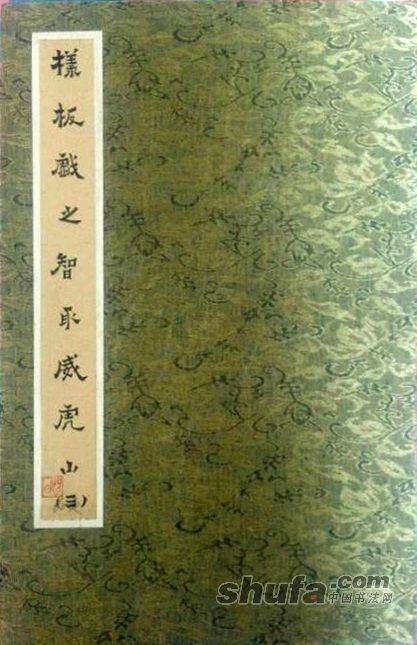 樣板戲之智取威虎山(三)
shufa.com
中国书法网